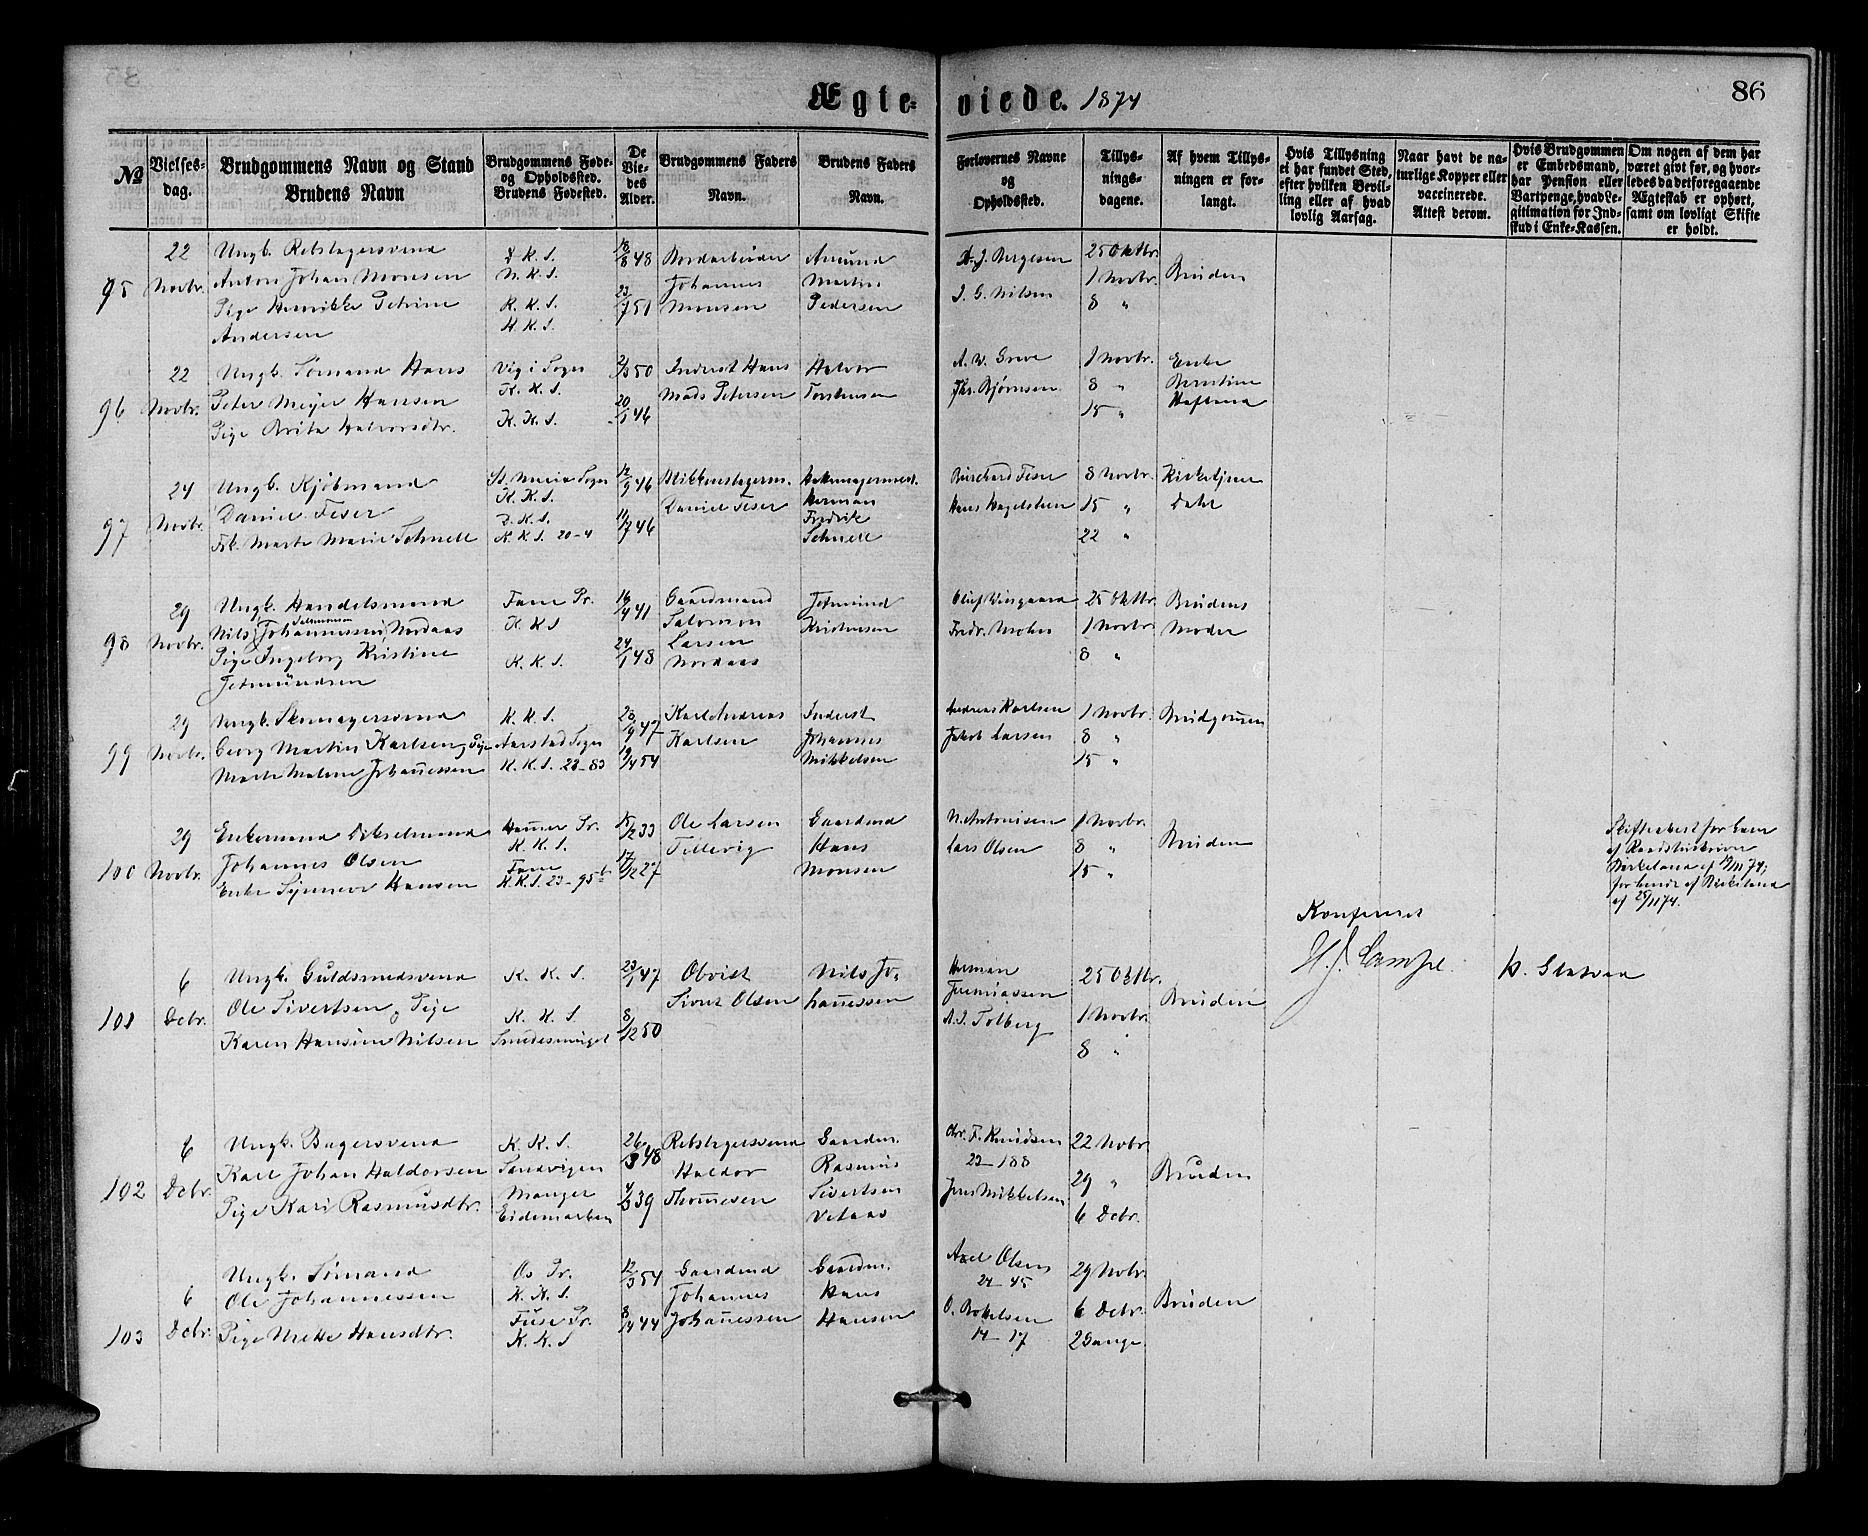 Ægte-viede. 1874
86
№
Vielses-dag.
Brudgommens Navn og Stand
Brudens Navn
Brudgommens Føde-
og Opholdssted.
Brudens Fødested.
De
Vie-
des
Alder.
Brudgommens Faders
Navn.
Brudens Faders
Navn.
Forlovernes Navne
og
Opholdssted.
Tillys-
nings-
dagene.
Af hvem Tillys-
ningen er for-
langt.
Hvis Tillysning
ei har fundet Sted,
efter hvilken Bevil-
ling eller af hvad
lovlig Aarsag.
Naar havt de na-
turlige Kopper eller
vaccinerede.
Attest derom.
Hvis Brudgommen
er Embedsmand,
har Pension eller
Vartpenge, hvad Le-
gitimation for Ind-
skud i Enke-Kassen.
Om nogen af dem har
været givt før, og hvor-
ledes da det foregaaende
Ægteskab er ophørt,
samt om lovligt Skifte
er holdt.
95
22
Novbr.
Ungk. Rebslagersvend
Anton Johan Monsen
Pige Henrikke Petrine
Andersen
D. K. S.
N. K. S.
K. K. S.
K. K. S.
18/8 48
23/7 51
Johannes
Monsen
Amund
Martin
Pedersen
A. J. Bergesen
J. G. Nilsen
25 Oktbr.
1 Novbr.
8 "
Bruden
96
22
Novbr.
Ungk. Sømand Hans
Peter Meyer Hansen
Pige Brita Halvorsdtr.
Vig i Sogn
K. K. S.
K. K. S.
50
20/1 46
Inderst Hans
Mads Petersen
Halvor
Torstensen
A. W. Greve
Chr. Bjørnsen
1 Novbr.
8 "
15 "
Enke
97
24
Novbr.
Ungk. Kjøbmand
Daniel Feser
Frk. Marte Marie Schnell
St. Maria Sogn
K. K. S.
D. K. S.
K. K. S. 20-4
12/9 46
11/7 46
Blikkenslagerm.
Daniel Feser
Herman
Fredrik
Schnell
Burchard Feser
Hans Hagelsteen
8 Novbr.
15 "
22 "
Kirketjener
Dahl
98
29
Novbr.
Ungk. Handelsmand
Salomonsen
Nils Johannessen Nordaas
Pige Ingeborg Kristine
Jetmundsen
Fane Pr.
K. K. S
K. K. S.
16/4 41
24/1 48
Gaardmand
Salomon
Larsen
Nordaas
Jetmund
Kristensen
Oluf Wiingaard
Fredr. Mohn
25 Oktbr.
1 Novbr.
8 "
Brudens
Moder
99
29
Novbr.
Ungk. Skomagersvend
Georg Martin Karlsen, Pige
Marte Malene Johannessen
K. K. S.
Aarstad Sogn
K. K. S. 23-83
28/9 47
19/4 54
Karl Andreas
Karlsen
Inderst
Johannes
Mikkelsen
Andreas Karlsen
Jakob Larsen
1 Novbr.
8 "
15 "
Brudgomen
100
29
Novbr.
Enkemand
Johannes Olsen
Enke Synneve Hansen
Hammer Pr.
K. K. S.
Fane
K. K. S. 23-95b
15/12 33
17/12 27
Ole Larsen
Tellevig
Gaardmd
Hans
Monsen
N. Antonisen
Lars Olsen
1 Novbr.
8 "
15 "
Bruden
Skifteattest for ham
af Raadstuskriver
Birkeland af /11 74,
for hende af Birkeland
af 25/11 74.
Konfereret
H. J. Lampe.
101
6
Decbr.
Ungk. Guldsmedsvend
Ole Sivertsen, Pige
Karen Hansine Nilsen
K. K. S.
K. K. S
Smedesmuget
23/1 47
8/12 50
Sivert Olsen
Nils Jo-
hannessen
Herman
Jeremiassen
A. I. Tolberg
25 Oktbr.
1 Novbr.
8 "
Bruden
102
6
Dcbr.
Ungk. Bagersvend
Karl Johan Haldorsen
Pige Kari Rasmusdtr.
K. K. S.
Sandvigen
Manger
Eidemarken
26/3 48
4/3 39
Rebslagersvend
Haldor
Thomesen
Gaardm.
Rasmus
Sivertsen
Vetaas
Chr. F. Knudsen
23-188
Jens Mikkelsen
22 Nobr.
29 "
6 Dcbr.
Bruden
103
6
Dcbr.
Ungk. Sømand
Ole Johannessen
Pige Mette Hansdtr.
Os Pr.
K. K. S.
Fuse Pr.
K. K. S
12/3 54
44
Gaardmd
Johannes
Johannessen
Gaardm.
Hans
Hansen
Axel Olsen
24-45
O. Bottelsen
14-17
29 Nobr.
6 Dcbr.
2 Gange.
Bruden